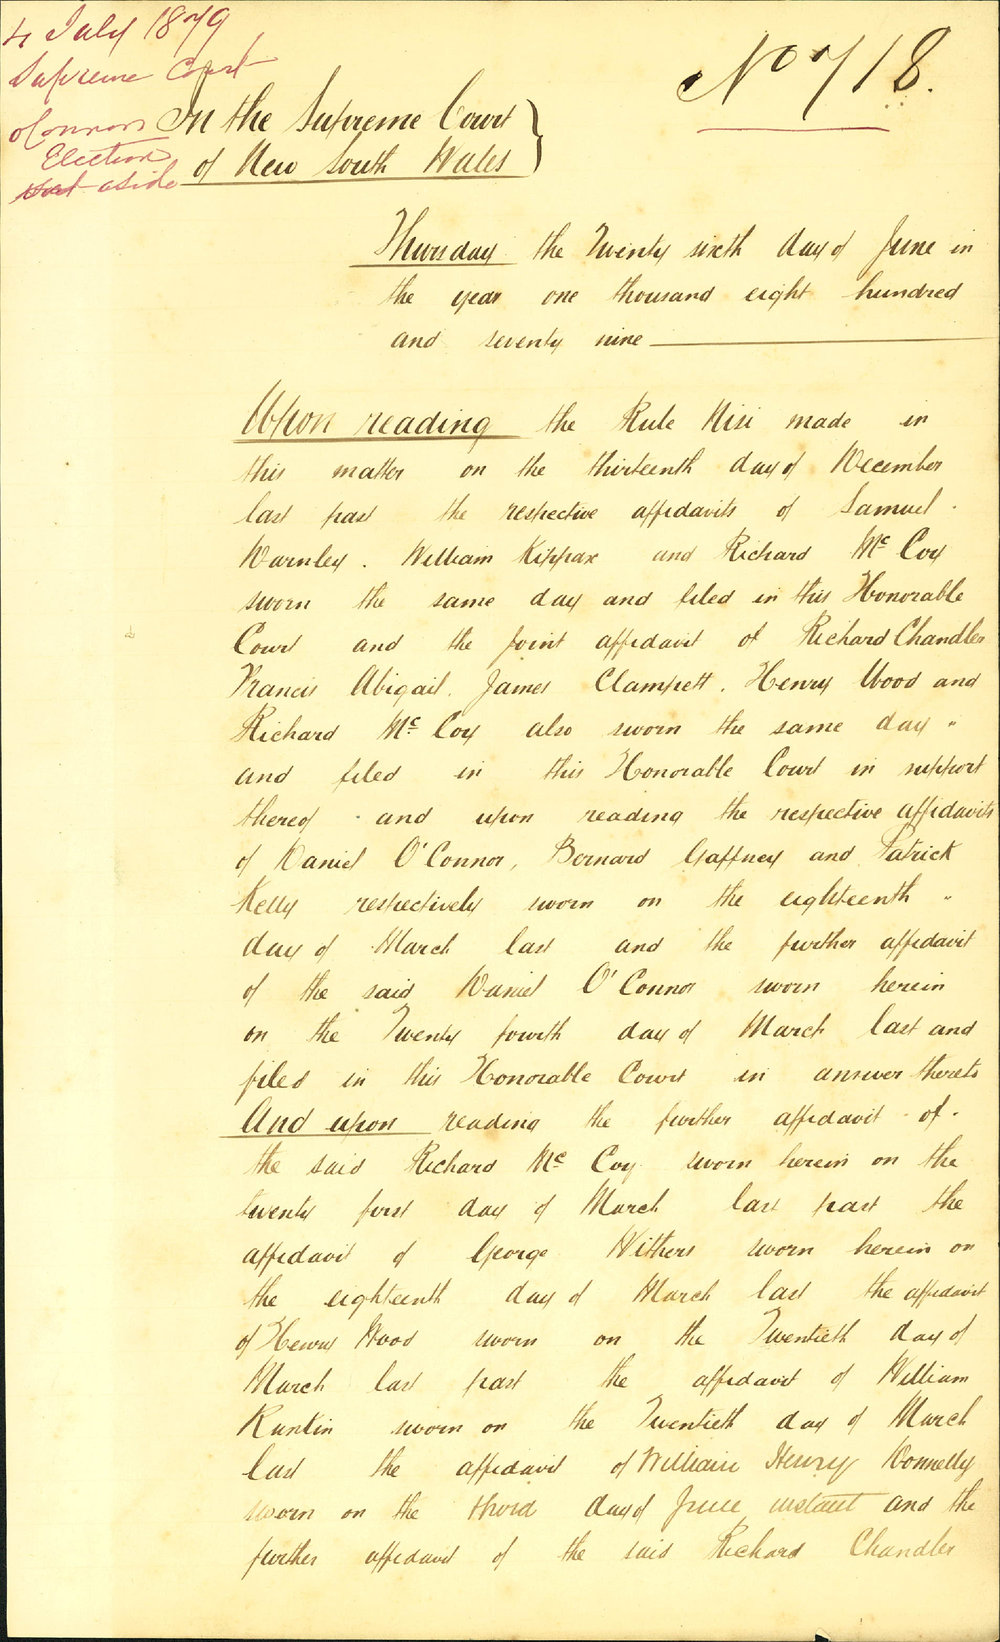 4 July 1879
Supreme Court
O'Connors
Election
set aside
No 718.
In the Supreme Court
of New South Wales
Thursday the Twenty sixth day of June in
the year one thousand eight hundred
and seventy nine
Upon reading the Rule Nisi made in
this matter on the thirteenth day of December
last past the respective affidavits of Samuel
Warnley. William Kippax and Richard Mc Coy
sworn the same day and filed in this Honorable
Court and the joint affidavit of Richard Chandler
Francis Abigail. James Clampett. Henry Wood and
Richard Mc Coy also sworn the same day "
and filed in this Honorable Court in support
thereof and upon reading the respective affidavits
of Daniel O'Connor, Bernard Gaffney and Patrick
Kelly respectively sworn on the eighteenth "
day of March last and the further affidavit
of the said Daniel O'Connor sworn herein
on the Twenty fourth day of March last and
filed in this Honorable Court in answer thereto
And upon reading the further affidavit of.
the said Richard Mc Coy sworn herein on the
twenty first day of March last past the
affidavit of George Withers sworn herein on
the eighteenth day of March last the affidavit
of Henry Wood sworn on the Twentieth day of
March last past the affidavit of William
Rankin sworn on the Twentieth day of March
last the affidavit of William Henry Donnelly
sworn on the third day of June instant and the
further affidavit of the said Richard Chandler